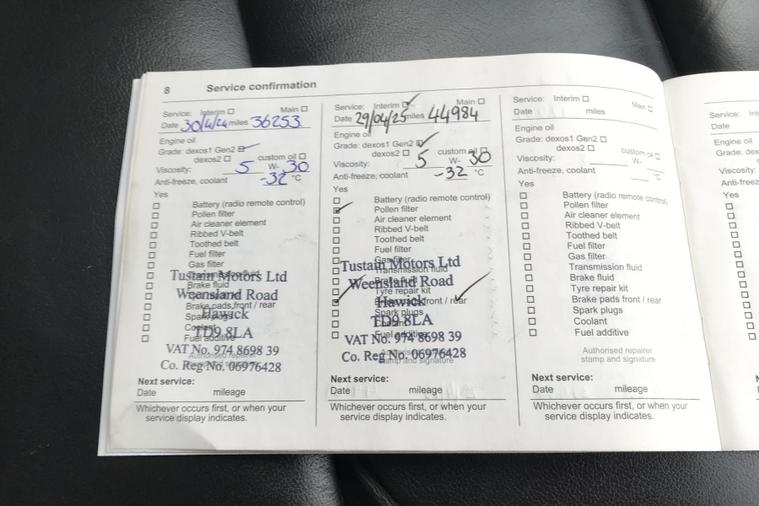 8 Service confirmation
Service: Interim ☐ Main ☐
Date 30/4/24 miles 36253
Engine oil
Grade: dexos1 Gen2 ☑
dexos2 ☐ custom oil ☐
Viscosity: 5 W- 30
Anti-freeze, coolant -32 °C
Yes
☐ Battery (radio remote control)
☐ Pollen filter
☐ Air cleaner element
☐ Ribbed V-belt
☐ Toothed belt
☐ Fuel filter
☐ Gas filter
Tustain Motors Ltd
☐ Brake fluid
Weensland Road
☐ Brake pads front / rear
☐ Spark plugs
Hawick
☐ Coolant
TD9 8LA
☐ Fuel additive
VAT No. 974 8698 39
Authorised repairer
Co. Reg No. 06976428
Next service:
Date mileage
Whichever occurs first, or when your
service display indicates.
Service: Interim ☑ Main ☐
Date 29/04/25 miles 44984
Engine oil
Grade: dexos1 Gen2 ☑
dexos2 ☐ custom oil ☐
Viscosity: 5 W- 30
Anti-freeze, coolant -32 °C
Yes
☐ Battery (radio remote control)
☑ Pollen filter
☐ Air cleaner element
☐ Ribbed V-belt
☐ Toothed belt
☐ Fuel filter
☐ Gas filter
Tustain Motors Ltd
☐ Transmission fluid
☐ Brake fluid
Weensland Road
☐ Tyre repair kit
☑ front / rear ✓
Hawick
☐ Spark plugs
TD9 8LA
☐ Fuel additive
VAT No. 974 8698 39
Co. Reg No. 06976428
stamp and signature
Next service:
Date mileage
Whichever occurs first, or when your
service display indicates.
Service: Interim ☐ Main ☐
Date miles
Engine oil
Grade: dexos1 Gen2 ☐
dexos2 ☐ custom oil ☐
Viscosity: W-
Anti-freeze, coolant °C
Yes
☐ Battery (radio remote control)
☐ Pollen filter
☐ Air cleaner element
☐ Ribbed V-belt
☐ Toothed belt
☐ Fuel filter
☐ Gas filter
☐ Transmission fluid
☐ Brake fluid
☐ Tyre repair kit
☐ Brake pads front / rear
☐ Spark plugs
☐ Coolant
☐ Fuel additive
Authorised repairer
stamp and signature
Next service:
Date mileage
Whichever occurs first, or when your
service display indicates.
Service:
Date
Engine oil
Grade:
Viscosity:
Yes
Next service:
Date